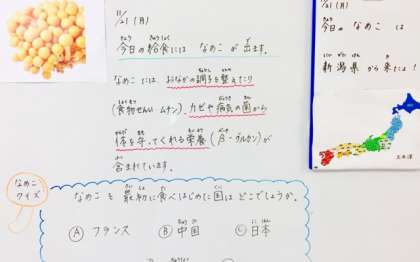 11/21(月)
今日の給食には なめこ が 出ます。
なめこ には、おなかの調子を整えたり
(食物せんい・ムチン)、カゼや病気の菌から
体を守ってくれる栄養(β-グルカン)が
含まれています。
なめこ
クイズ
なめこ を 最初に食べはじめた国は どこでしょうか。
Ⓐ フランス Ⓑ 中国 Ⓒ 日本
11/21(月)
今日の なめこ は
新潟県 から 来たよ!